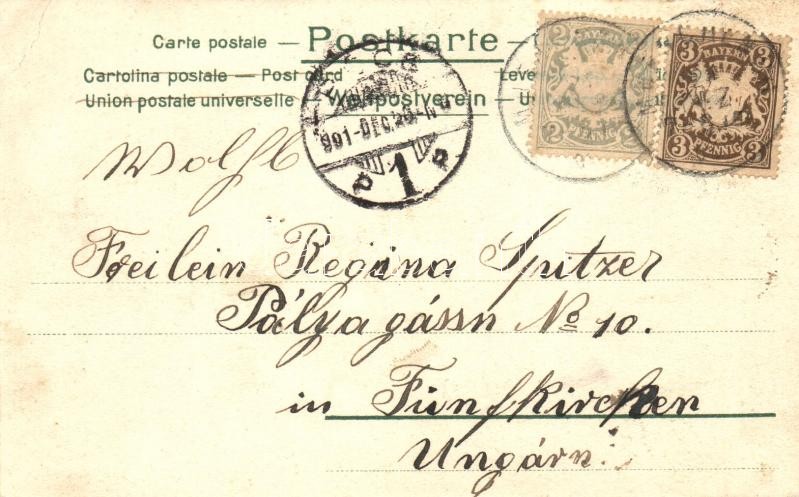 Carte postale — Postkarte —
Cartolina postale — Post card Leve
Union postale universelle — Weltpostverein — U
2 2
BAYERN
2 PFENNIG 2
3 BAYERN 3
3 PFENNIG 3
PÉCS
901-DEC.
P 1 P
Wohlb
Freilein Regina Spitzer
Pályagássn No 10.
in Fünfkirchen
Ungárn.